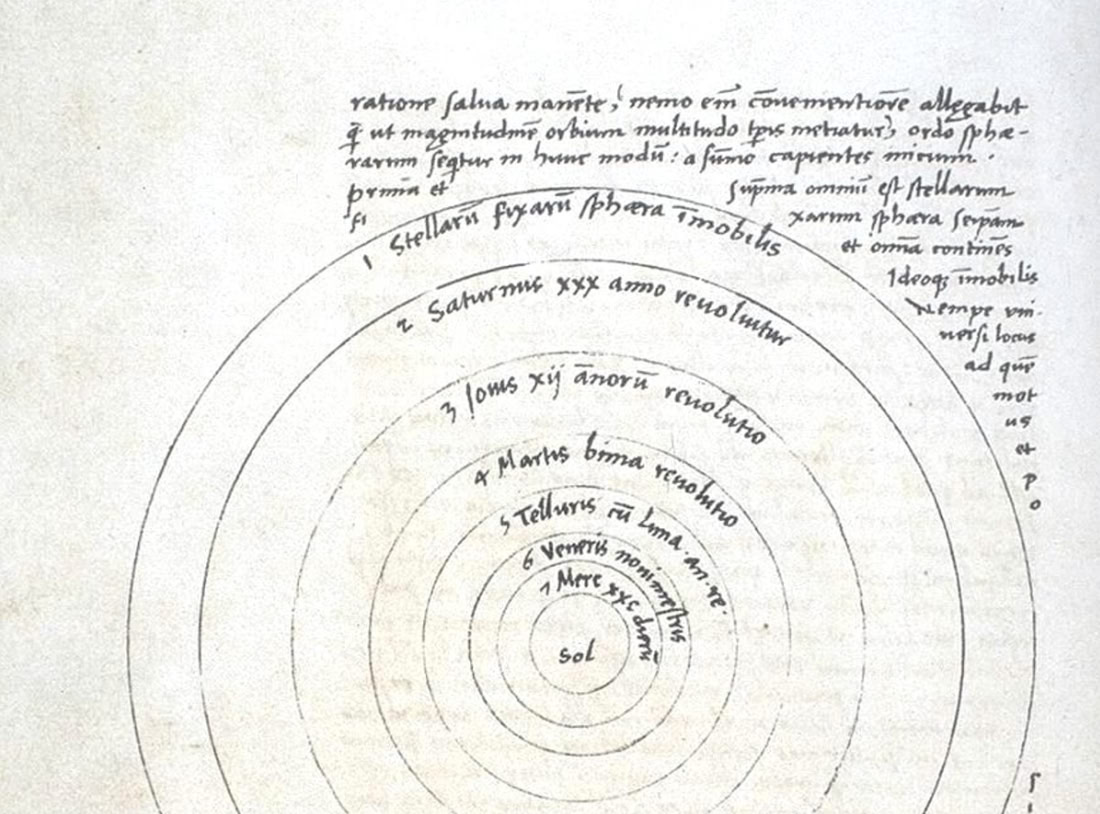 ratione salua manēte, nemo em̄ cōuenientiorē allegabit
q̄ ut magnitudinē orbium multitudo tp̄is metiatur, ordo sphæ-
rarum seq̄tur in hunc modū: a sūmo capientes initium.
prima et sup̄ma omniū est stellarum
fixarum sphæra seip̄am
et om̄ia continēs
Ideoq; īmobilis
Nempe vni-
uersi locus
ad quē
mot
us
et
p
o
1 Stellarū fixarū sphæra īmobilis
2 Saturnus xxx anno reuoluitur
3 Iouis xij ānorū reuolutio
4 Martis bima reuolutio
5 Telluris cū Luna .an. re.
6 Veneris nonimestris
7 Merc xxc dierū
Sol